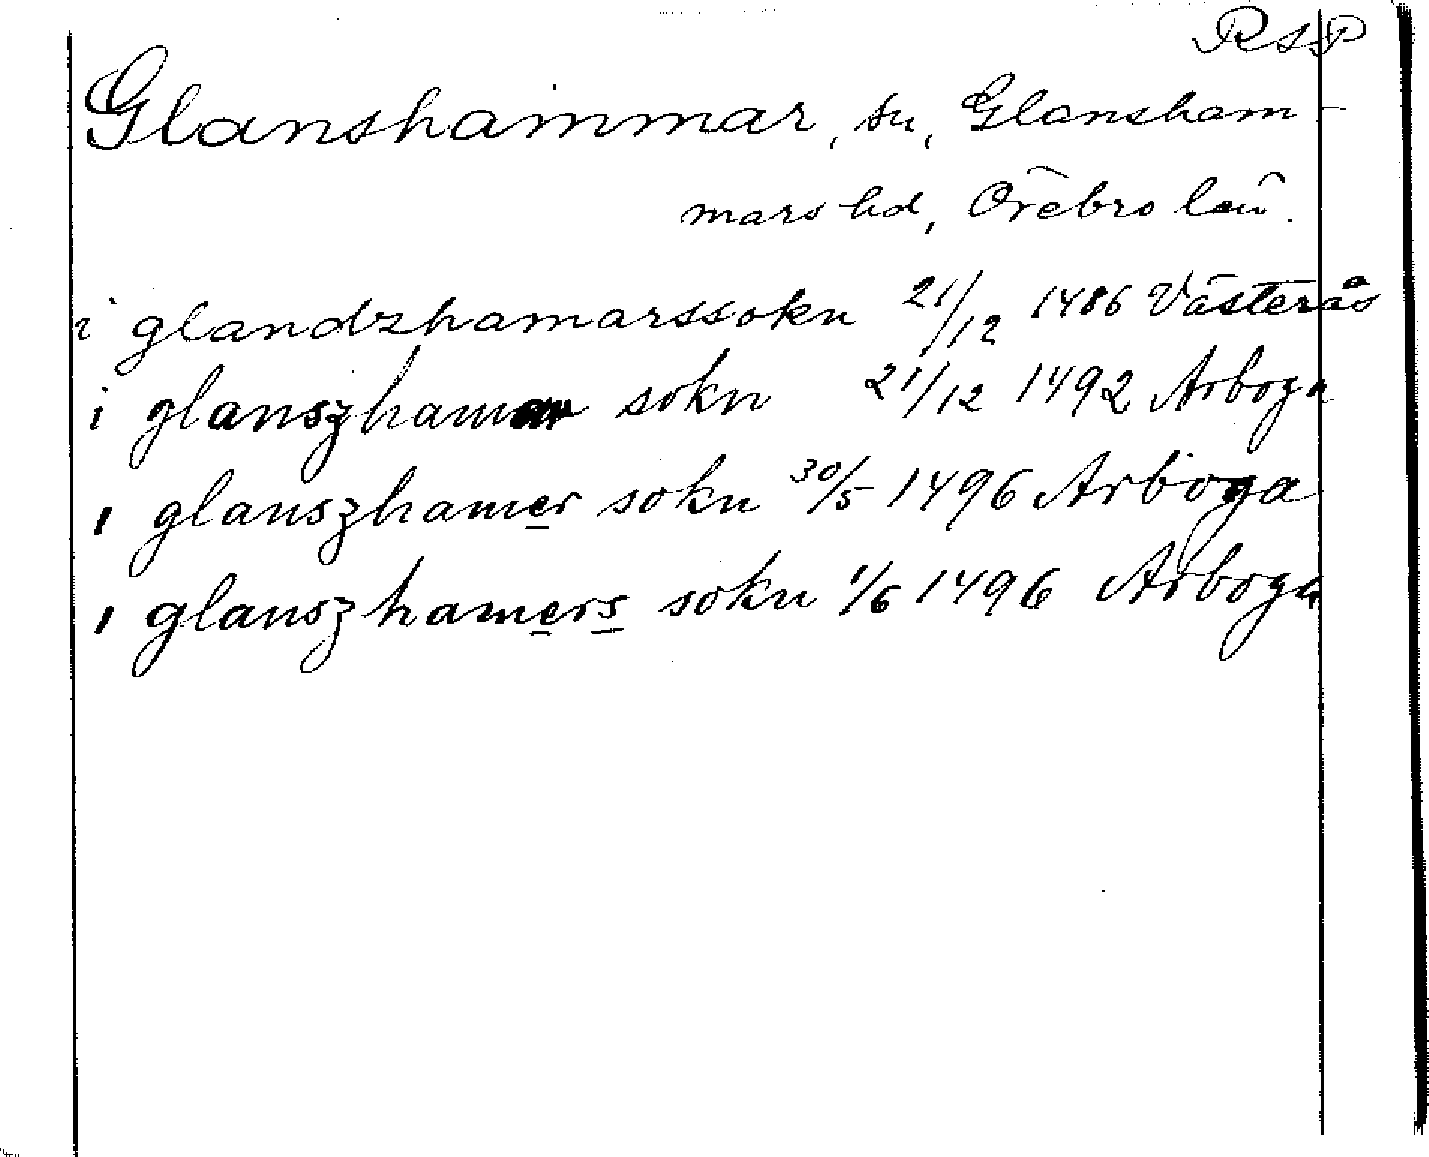 RSP
Glanshammar, sn, Glansham-
mars hd, Örebro län.
i glandzhamarssokn 21/12 1486 Västerås
i glanszhamar sokn 21/12 1492 Arboga
i glanszhamer sokn 30/5 1496 Arboga
i glanszhamers sokn 1/6 1496 Arboga